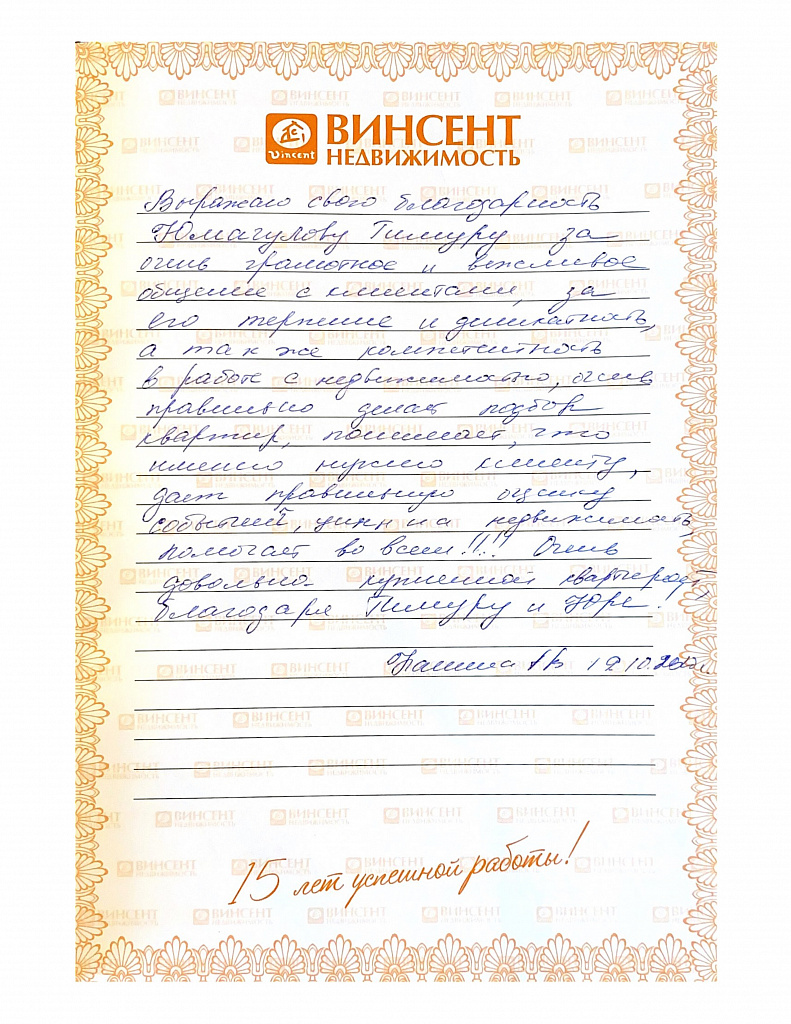 Vincent
ВИНСЕНТ
НЕДВИЖИМОСТЬ
Выражаю свою благодарность
Юмагулову Тимуру за
очень грамотное и вежливое
общение с клиентами, за
его терпение и деликатность,
а так же компетентность
в работе с недвижимостью, очень
правильно делает подбор
квартир, понимает, что
именно нужно клиенту,
дает правильную оценку
событий, цен на недвижимость,
помогает во всем!!!! Очень
довольна купленной квартирой,
благодаря Тимуру и Юре.
19.10.2017г.
15 лет успешной работы!